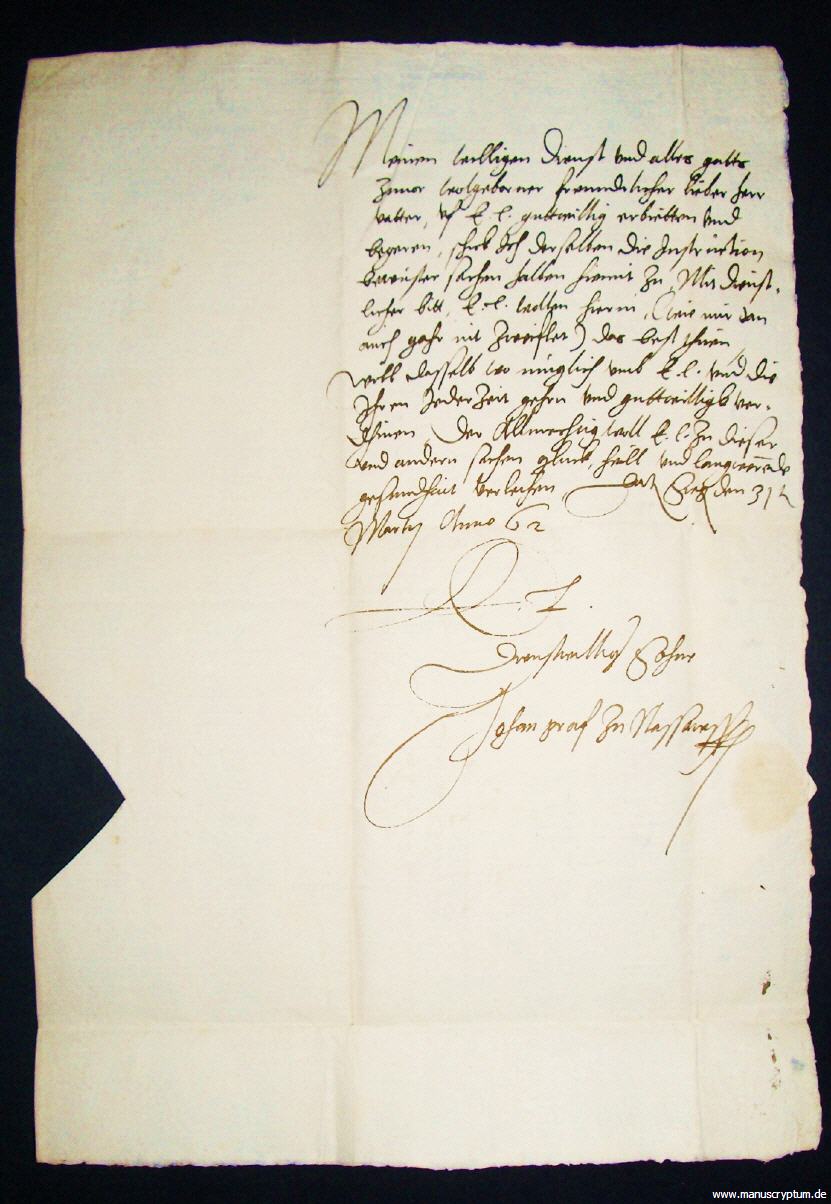 Meinen willigen Dienst und alles gutts
Zuvor wolgeborner freundtlicher lieber herr
vatter, Uf E. L. guttwillig erbietten und
begeren, schick Ich derselben die Instruction
bewuster sachen halben hiemit zu, Mit dienst-
licher bitt, E. L. wolten hierin, (wie mir dan
auch gahr nit Zweiflet) das best thuen
Will dasselb wo muglich umb E. L. und die
Ihren Jeder Zeit gehrn und guttwilligk ver-
thienen, Der Allmechtig woll E. L. Zu dieser
und andern sachen gluck, heill und langwerende
gesundheit verleihen, Dat Siegen den 31t
Martij Anno 62
E. L.
Dienstwilliger Sohne
Johan graf Zu Nassaw
www.manuscryptum.de